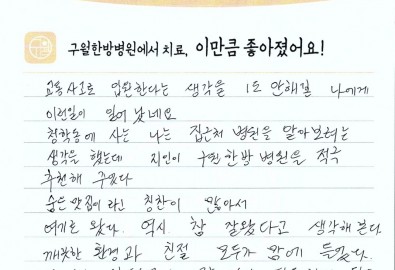 구월한방병원에서 치료, 이만큼 좋아졌어요!
교통사고로 입원한다는 생각을 1도 안해본 나에게
이런일이 일어 났네요
청학동에 사는 나는 집근처 병원을 알아보려는
생각을 했는데 지인이 구월한방 병원을 적극
추천해 주었다
숨은 맛집이라는 칭찬이 많아서
여기로 왔다. 역시. 참 잘왔다고 생각해 본다
깨끗한 환경과 친절 모두가 맘에 들었다.